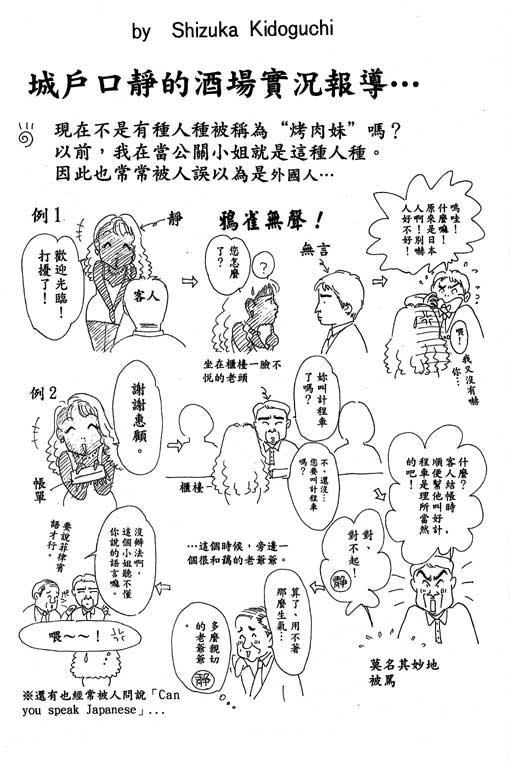 by Shizuka Kidoguchi
城戶口靜的酒場實況報導…
現在不是有種人種被稱為“烤肉妹”嗎？
以前，我在當公關小姐就是這種人種。
因此也常常被人誤以為是外國人…
例1
靜
歡迎光臨！
打擾了！
客人
鴉雀無聲！
您怎麼
了？
？
無言
嗚哇！
什麼嘛！
原來是日本
人啊！別嚇
人好不好！
喂！
我又沒有嚇
你…
坐在櫃檯一臉不
悅的老頭
例2
謝謝惠顧。
帳單
櫃檯
妳叫計程車
了嗎？
不、還沒…
您要叫計程車
嗎？
什麼？
客人結帳時，
順便幫他叫好計
程車是理所當然
的吧！
對、
對不起！
靜
莫名其妙地
被罵
…這個時候，旁邊一
個很和藹的老爺爺。
算了、用不著
那麼生氣…
多麼親切
的老爺爺。
靜
沒辦法啊，
這個小姐聽不懂
你說的語言嘛。
要說菲律賓
語才行。
喂～～！
※還有也經常被人問說「Can
you speak Japanese」...